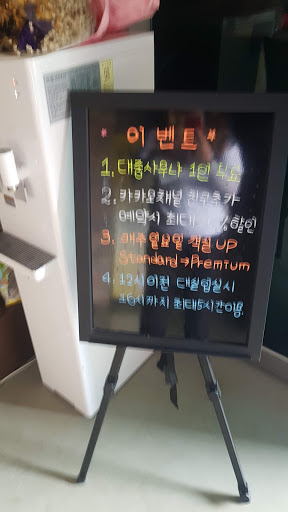 * 이벤트 *
1. 대중사우나 1인 무료
2. 카카오채널 친구추가
예약시 최대 %할인
3. 매주 일요일 객실 UP
Standard → Premium
4. 12시이전 대실입실시
16시까지 최대5시간이용